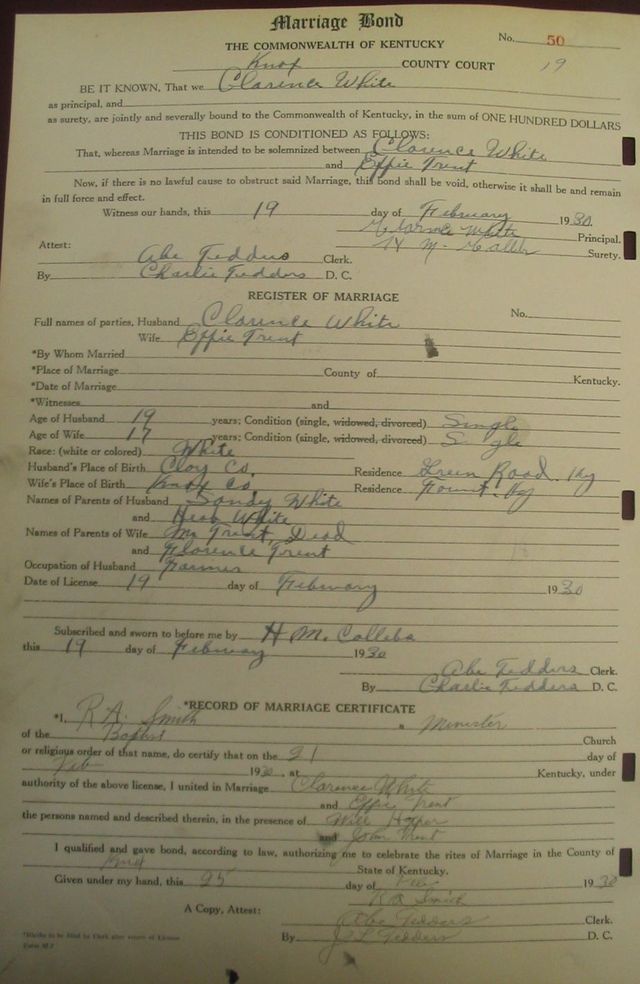 Marriage Bond
No. 50
THE COMMONWEALTH OF KENTUCKY
Knox COUNTY COURT 19
BE IT KNOWN, That we Clarence White
as principal, and
as surety, are jointly and severally bound to the Commonwealth of Kentucky, in the sum of ONE HUNDRED DOLLARS
THIS BOND IS CONDITIONED AS FOLLOWS:
That, whereas Marriage is intended to be solemnized between Clarence White
and Effie Trent
Now, if there is no lawful cause to obstruct said Marriage, this bond shall be void, otherwise it shall be and remain
in full force and effect.
Witness our hands, this 19 day of February 1930.
Clarence White Principal.
H M. Surety.
Attest:
Abe Tedders Clerk.
By Charlie Tedders D. C.
REGISTER OF MARRIAGE
Full names of parties, Husband Clarence White No.
Wife Effie Trent
*By Whom Married
*Place of Marriage County of Kentucky.
*Date of Marriage
*Witnesses and
Age of Husband 19 years; Condition (single, widowed, divorced) Single
Age of Wife 17 years; Condition (single, widowed, divorced) Single
Race: (white or colored) White
Husband's Place of Birth Clay Co. Residence Green Road. Ky
Wife's Place of Birth Knox Co Residence Fount. Ky
Names of Parents of Husband Sandy White
and White
Names of Parents of Wife Trent, Dead
and Florence Trent
Occupation of Husband Farmer
Date of License 19 day of February 1930
Subscribed and sworn to before me by H M.
this 19 day of February 1930
Abe Tedders Clerk.
By Charlie Tedders D. C.
*RECORD OF MARRIAGE CERTIFICATE
*I, R. A. Smith a Minister
of the Baptist Church
or religious order of that name, do certify that on the 21 day of
Feb 1930, at Kentucky, under
authority of the above license, I united in Marriage Clarence White
and Effie Trent
the persons named and described therein, in the presence of Will
and John Trent
I qualified and gave bond, according to law, authorizing me to celebrate the rites of Marriage in the County of
Knox State of Kentucky.
Given under my hand, this 25 day of Feb 1930
R A Smith
A Copy, Attest: Abe Tedders Clerk.
By Tedders D. C.
*Blanks to be filled by Clerk after return of License